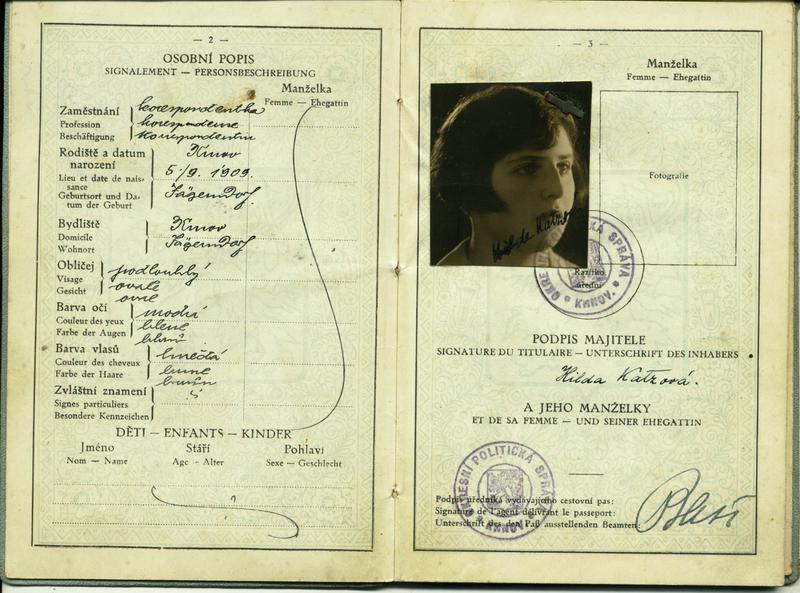 — 2 —
OSOBNÍ POPIS
SIGNALEMENT — PERSONSBESCHREIBUNG
Manželka
Femme — Ehegattin
Zaměstnání
Profession
Beschäftigung
korespondentka
korespondente
korrespondentin
Rodiště a datum
narození
Lieu et date de nais-
sance
Geburtsort und Da-
tum der Geburt
Krnov
5./9. 1909.
Jägerndorf
Bydliště
Domicile
Wohnort
Krnov
Jägerndorf
Obličej
Visage
Gesicht
podlouhlý
ovale
Barva očí
Couleur des yeux
Farbe der Augen
modrá
Barva vlasů
Couleur des cheveux
Farbe der Haare
hnědá
Zvláštní znamení
Signes particuliers
Besondere Kennzeichen
DĚTI — ENFANTS — KINDER
Jméno
Nom — Name
Stáří
Age - Alter
Pohlaví
Sexe — Geschlecht
— 3 —
Manželka
Femme — Ehegattin
Fotografie
Hilda Katzová
Razítko
úřední
KRNOV.
PODPIS MAJITELE
SIGNATURE DU TITULAIRE — UNTERSCHRIFT DES INHABERS
Hilda Katzová.
A JEHO MANŽELKY
ET DE SA FEMME — UND SEINER EHEGATTIN
OKRESNÍ POLITICKÁ SPRÁVA KRNOV
Podpis úředníka vydávajícího cestovní pas:
Signature de l'agent délivrant le passeport:
Unterschrift des den Paß ausstellenden Beamten: